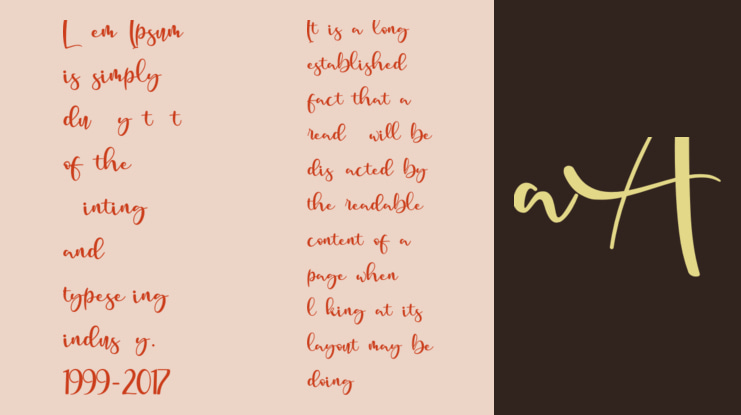 L em Ipsum
is simply
du y t t
of the
inting
and
typese ing
indus y.
1999-2017
It is a long
established
fact that a
read will be
dis acted by
the readable
content of a
page when
l king at its
layout may be
doing
aA